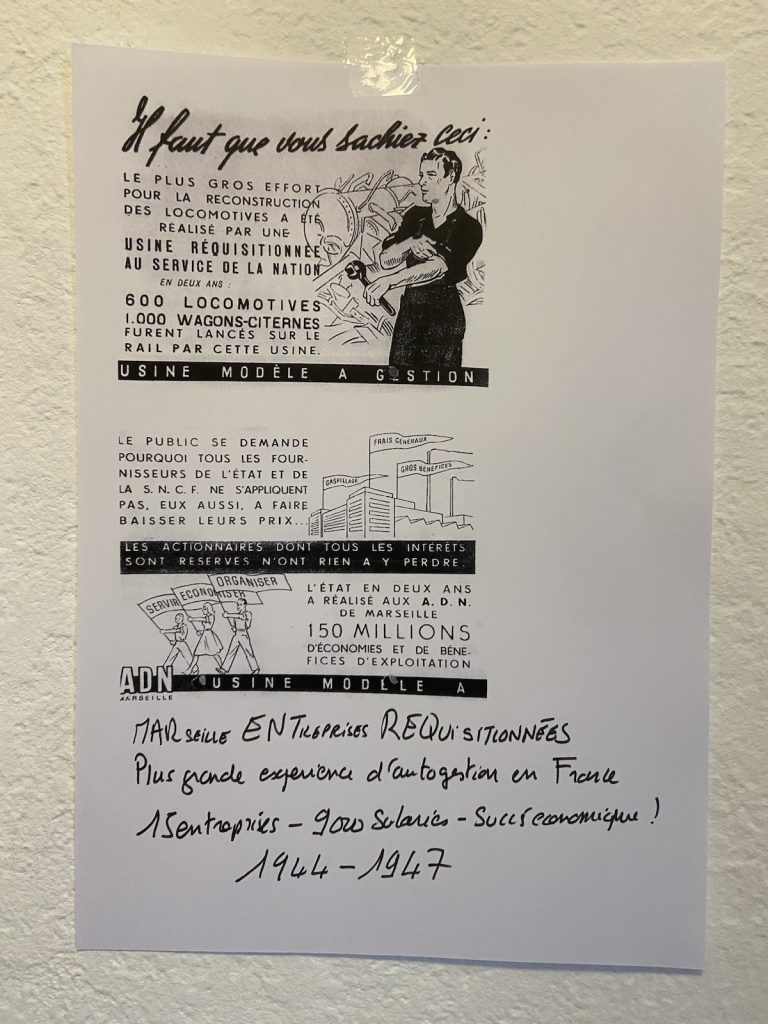 Il faut que vous sachiez ceci :
LE PLUS GROS EFFORT
POUR LA RECONSTRUCTION
DES LOCOMOTIVES A ÉTÉ
RÉALISÉ PAR UNE
USINE RÉQUISITIONNÉE
AU SERVICE DE LA NATION
EN DEUX ANS :
600 LOCOMOTIVES
1.000 WAGONS-CITERNES
FURENT LANCÉS SUR LE
RAIL PAR CETTE USINE.
USINE MODÈLE A GESTION
LE PUBLIC SE DEMANDE
POURQUOI TOUS LES FOUR-
NISSEURS DE L'ÉTAT ET DE
LA S.N.C.F. NE S'APPLIQUENT
PAS, EUX AUSSI, A FAIRE
BAISSER LEURS PRIX...
FRAIS GENERAUX
GROS BÉNÉFICES
GASPILLAGE
LES ACTIONNAIRES DONT TOUS LES INTÉRÊTS
SONT RESERVÉS N'ONT RIEN A Y PERDRE.
SERVIR
ECONOMISER
ORGANISER
L'ÉTAT EN DEUX ANS
A RÉALISÉ AUX A.D.N.
DE MARSEILLE
150 MILLIONS
D'ÉCONOMIES ET DE BÉNÉ-
FICES D'EXPLOITATION
ADN
MARSEILLE
USINE MODÈLE A
MARSEILLE ENTREPRISES REQUISITIONNÉES
Plus grande experience d'autogestion en France
15 entreprises - 9000 Salariés - Succès economique !
1944 - 1947